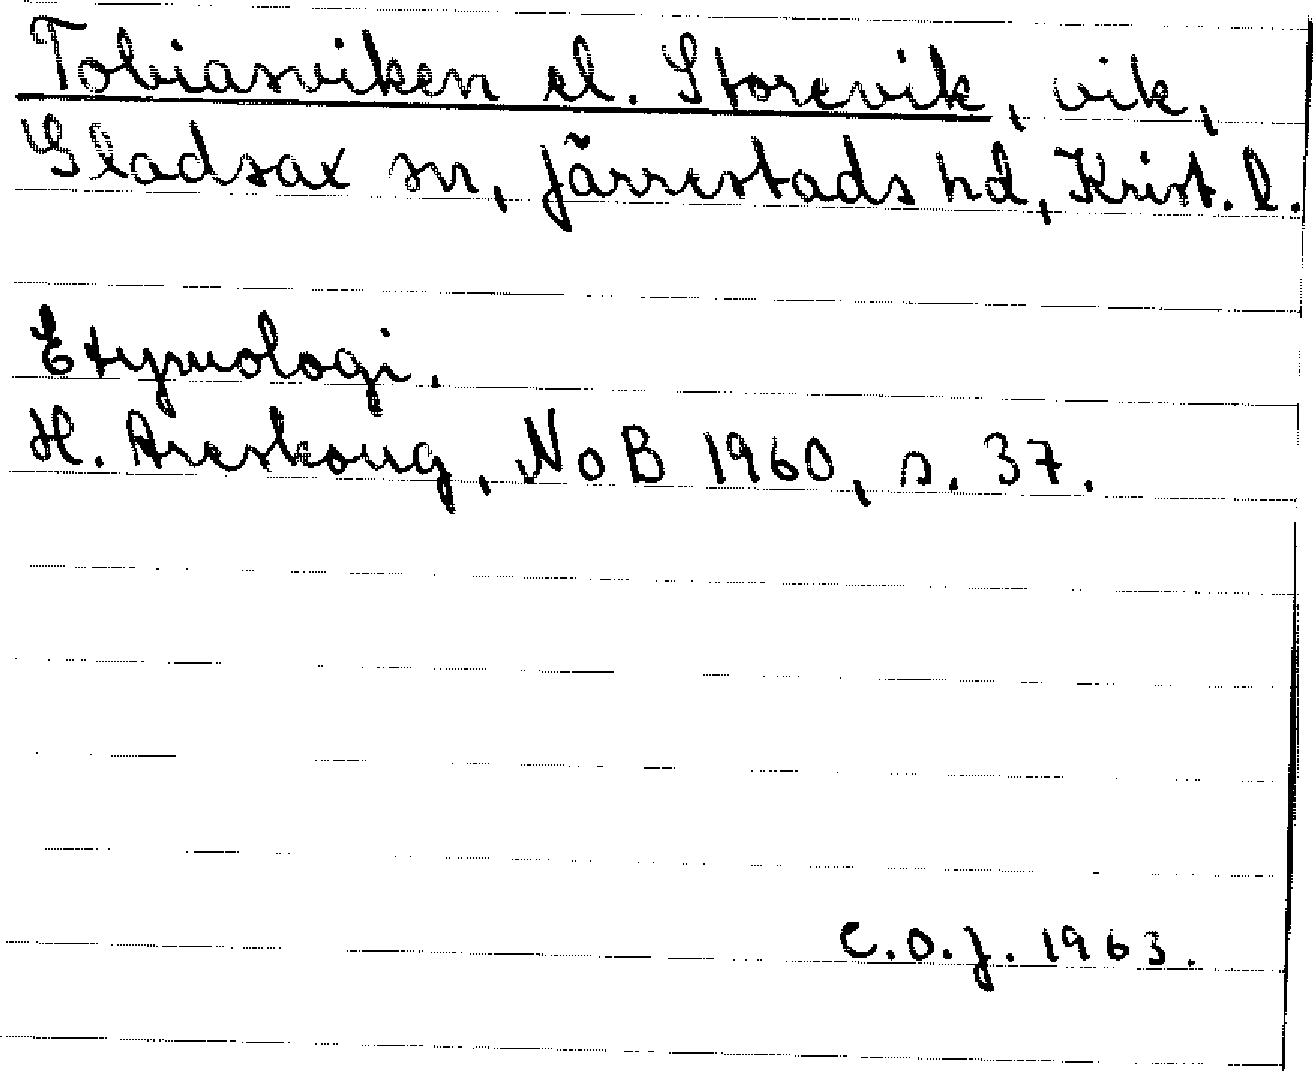 Tobiasviken el. Storevik, vik,
Gladsax sn, Järrestads hd, Krist. l.
Etymologi.
H. Areskoug, NoB 1960, s. 37.
C.O.J. 1963.